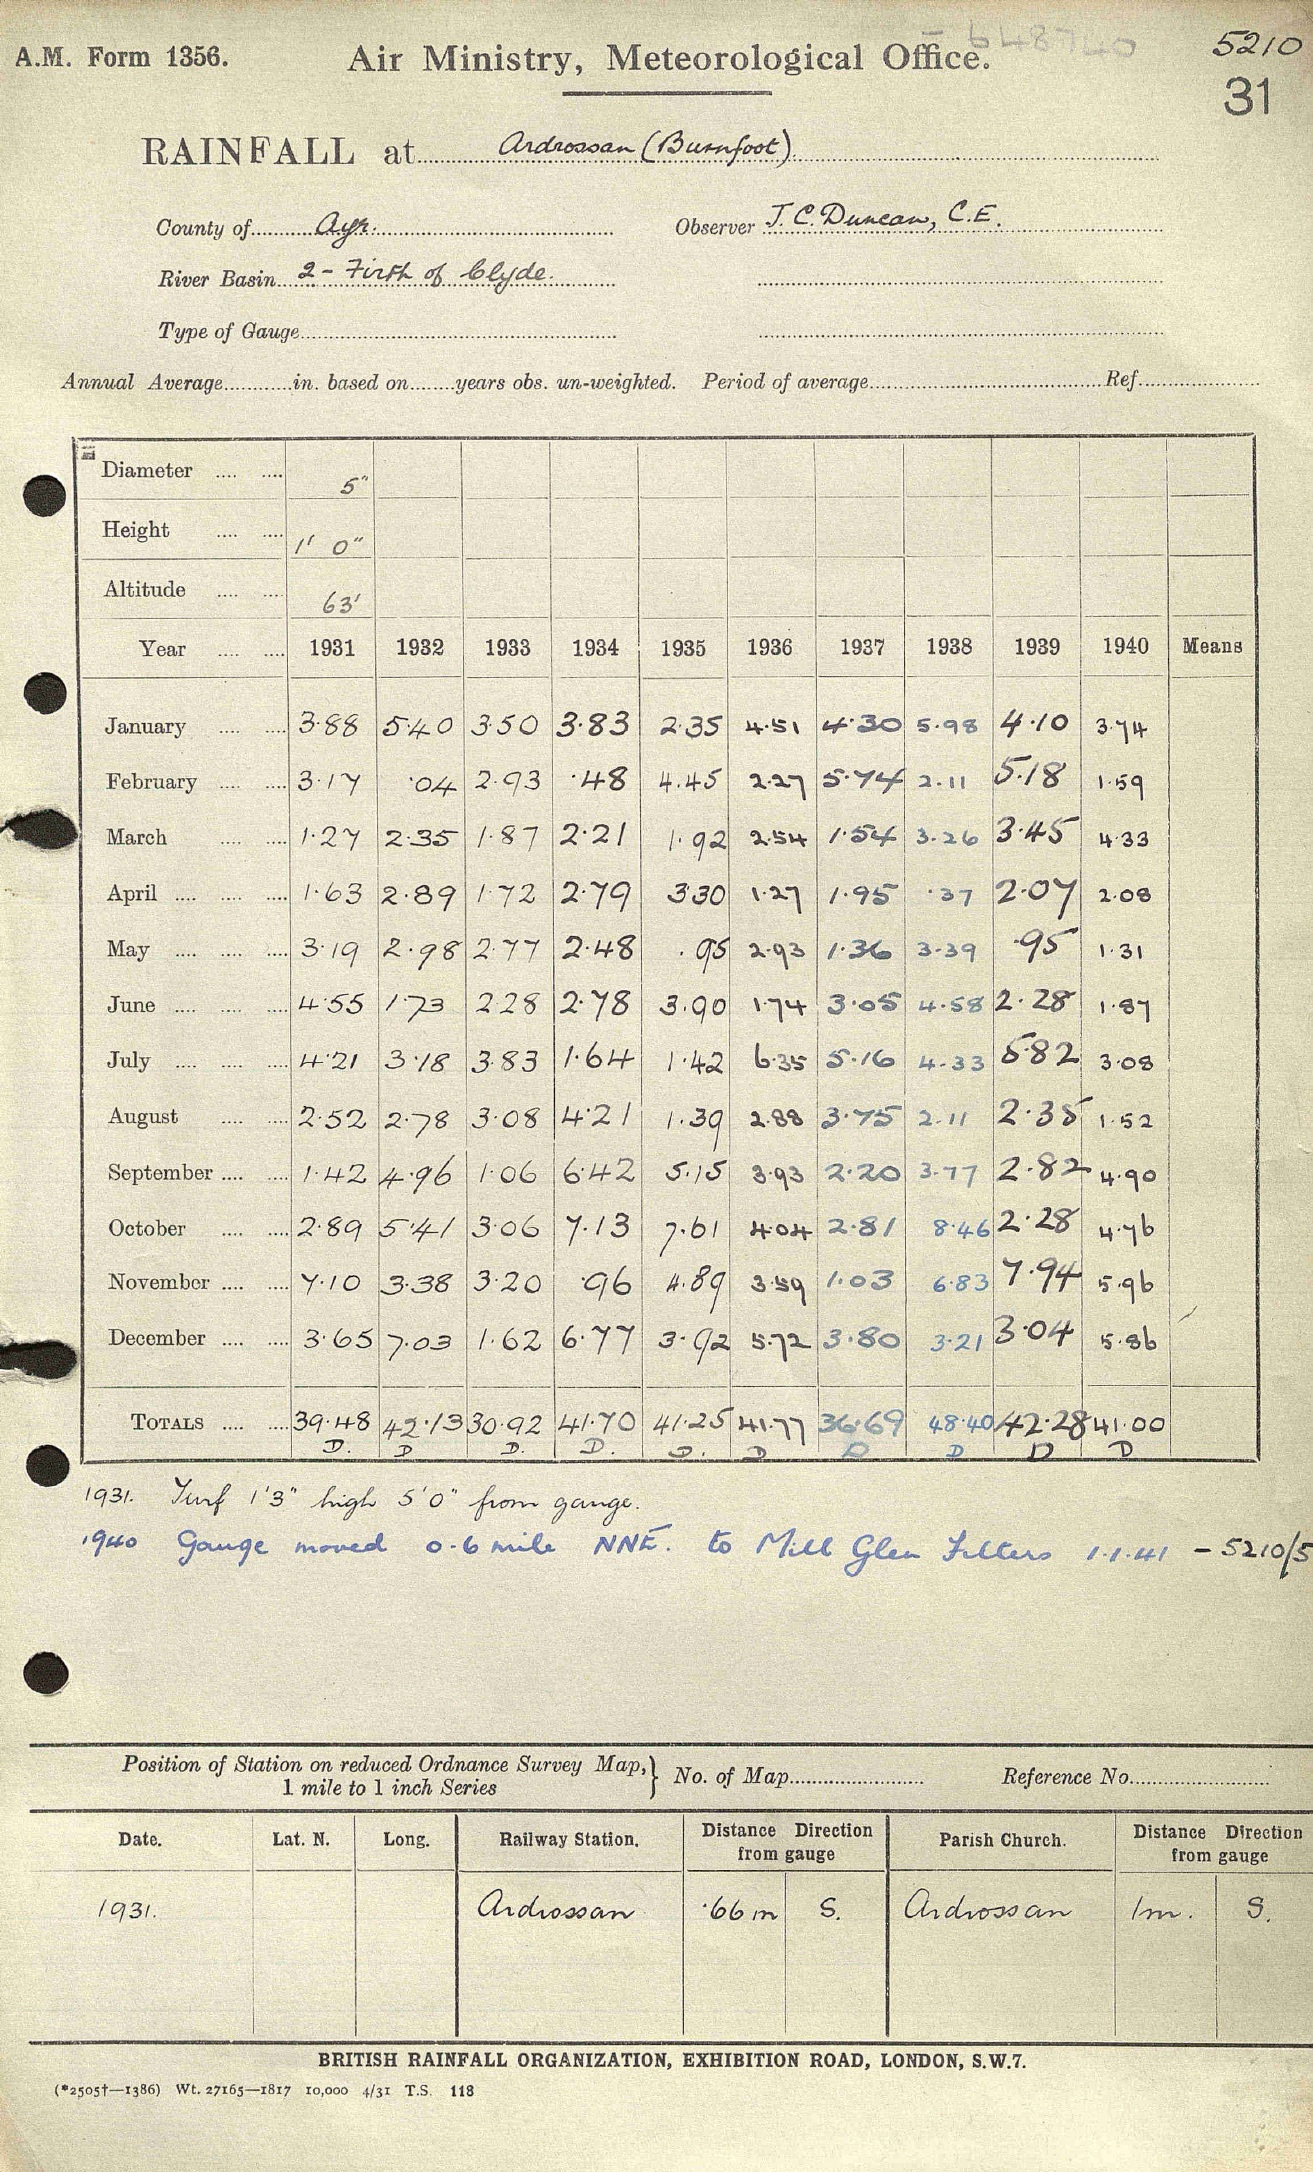 - 648740
5210
A.M. Form 1356. Air Ministry, Meteorological Office.
31
RAINFALL at Ardrossan (Burnfoot)
County of Ayr. Observer J. C. Duncan, C.E.
River Basin 2 - Firth of Clyde.
Type of Gauge
Annual Average in. based on years obs. un-weighted. Period of average Ref.
Diameter 5"
Height 1' 0"
Altitude 63'
Year 1931 1932 1933 1934 1935 1936 1937 1938 1939 1940 Means
January 3·88 5·40 3·50 3·83 2·35 4·51 4·30 5·98 4·10 3·74
February 3·17 ·04 2·93 ·48 4·45 2·27 5·74 2·11 5·18 1·59
March 1·27 2·35 1·87 2·21 1·92 2·54 1·54 3·26 3·45 4·33
April 1·63 2·89 1·72 2·79 3·30 1·27 1·95 ·37 2·07 2·08
May 3·19 2·98 2·77 2·48 ·95 2·93 1·36 3·39 ·95 1·31
June 4·55 1·73 2·28 2·78 3·90 1·74 3·05 4·58 2·28 1·87
July 4·21 3·18 3·83 1·64 1·42 6·35 5·16 4·33 5·82 3·08
August 2·52 2·78 3·08 4·21 1·39 2·88 3·75 2·11 2·35 1·52
September 1·42 4·96 1·06 6·42 5·15 3·93 2·20 3·77 2·82 4·90
October 2·89 5·41 3·06 7·13 7·61 4·04 2·81 8·46 2·28 4·76
November 7·10 3·38 3·20 ·96 4·89 3·59 1·03 6·83 7·94 5·96
December 3·65 7·03 1·62 6·77 3·92 5·72 3·80 3·21 3·04 5·86
TOTALS 39·48 42·13 30·92 41·70 41·25 41·77 36·69 48·40 42·28 41·00
D. D D. D. D. D D D D D
1931. Turf 1'3" high 5'0" from gauge.
1940 Gauge moved 0·6 mile NNE. to Mill Glen Filters 1.1.41 - 5210/5
Position of Station on reduced Ordnance Survey Map,} No. of Map Reference No.
1 mile to 1 inch Series
Date. Lat. N. Long. Railway Station. Distance Direction from gauge Parish Church. Distance Direction from gauge
1931. Ardrossan ·66 m S. Ardrossan 1m. S.
BRITISH RAINFALL ORGANIZATION, EXHIBITION ROAD, LONDON, S.W.7.
(*2505†—1386) Wt. 27165—1817 10,000 4/31 T.S. 118